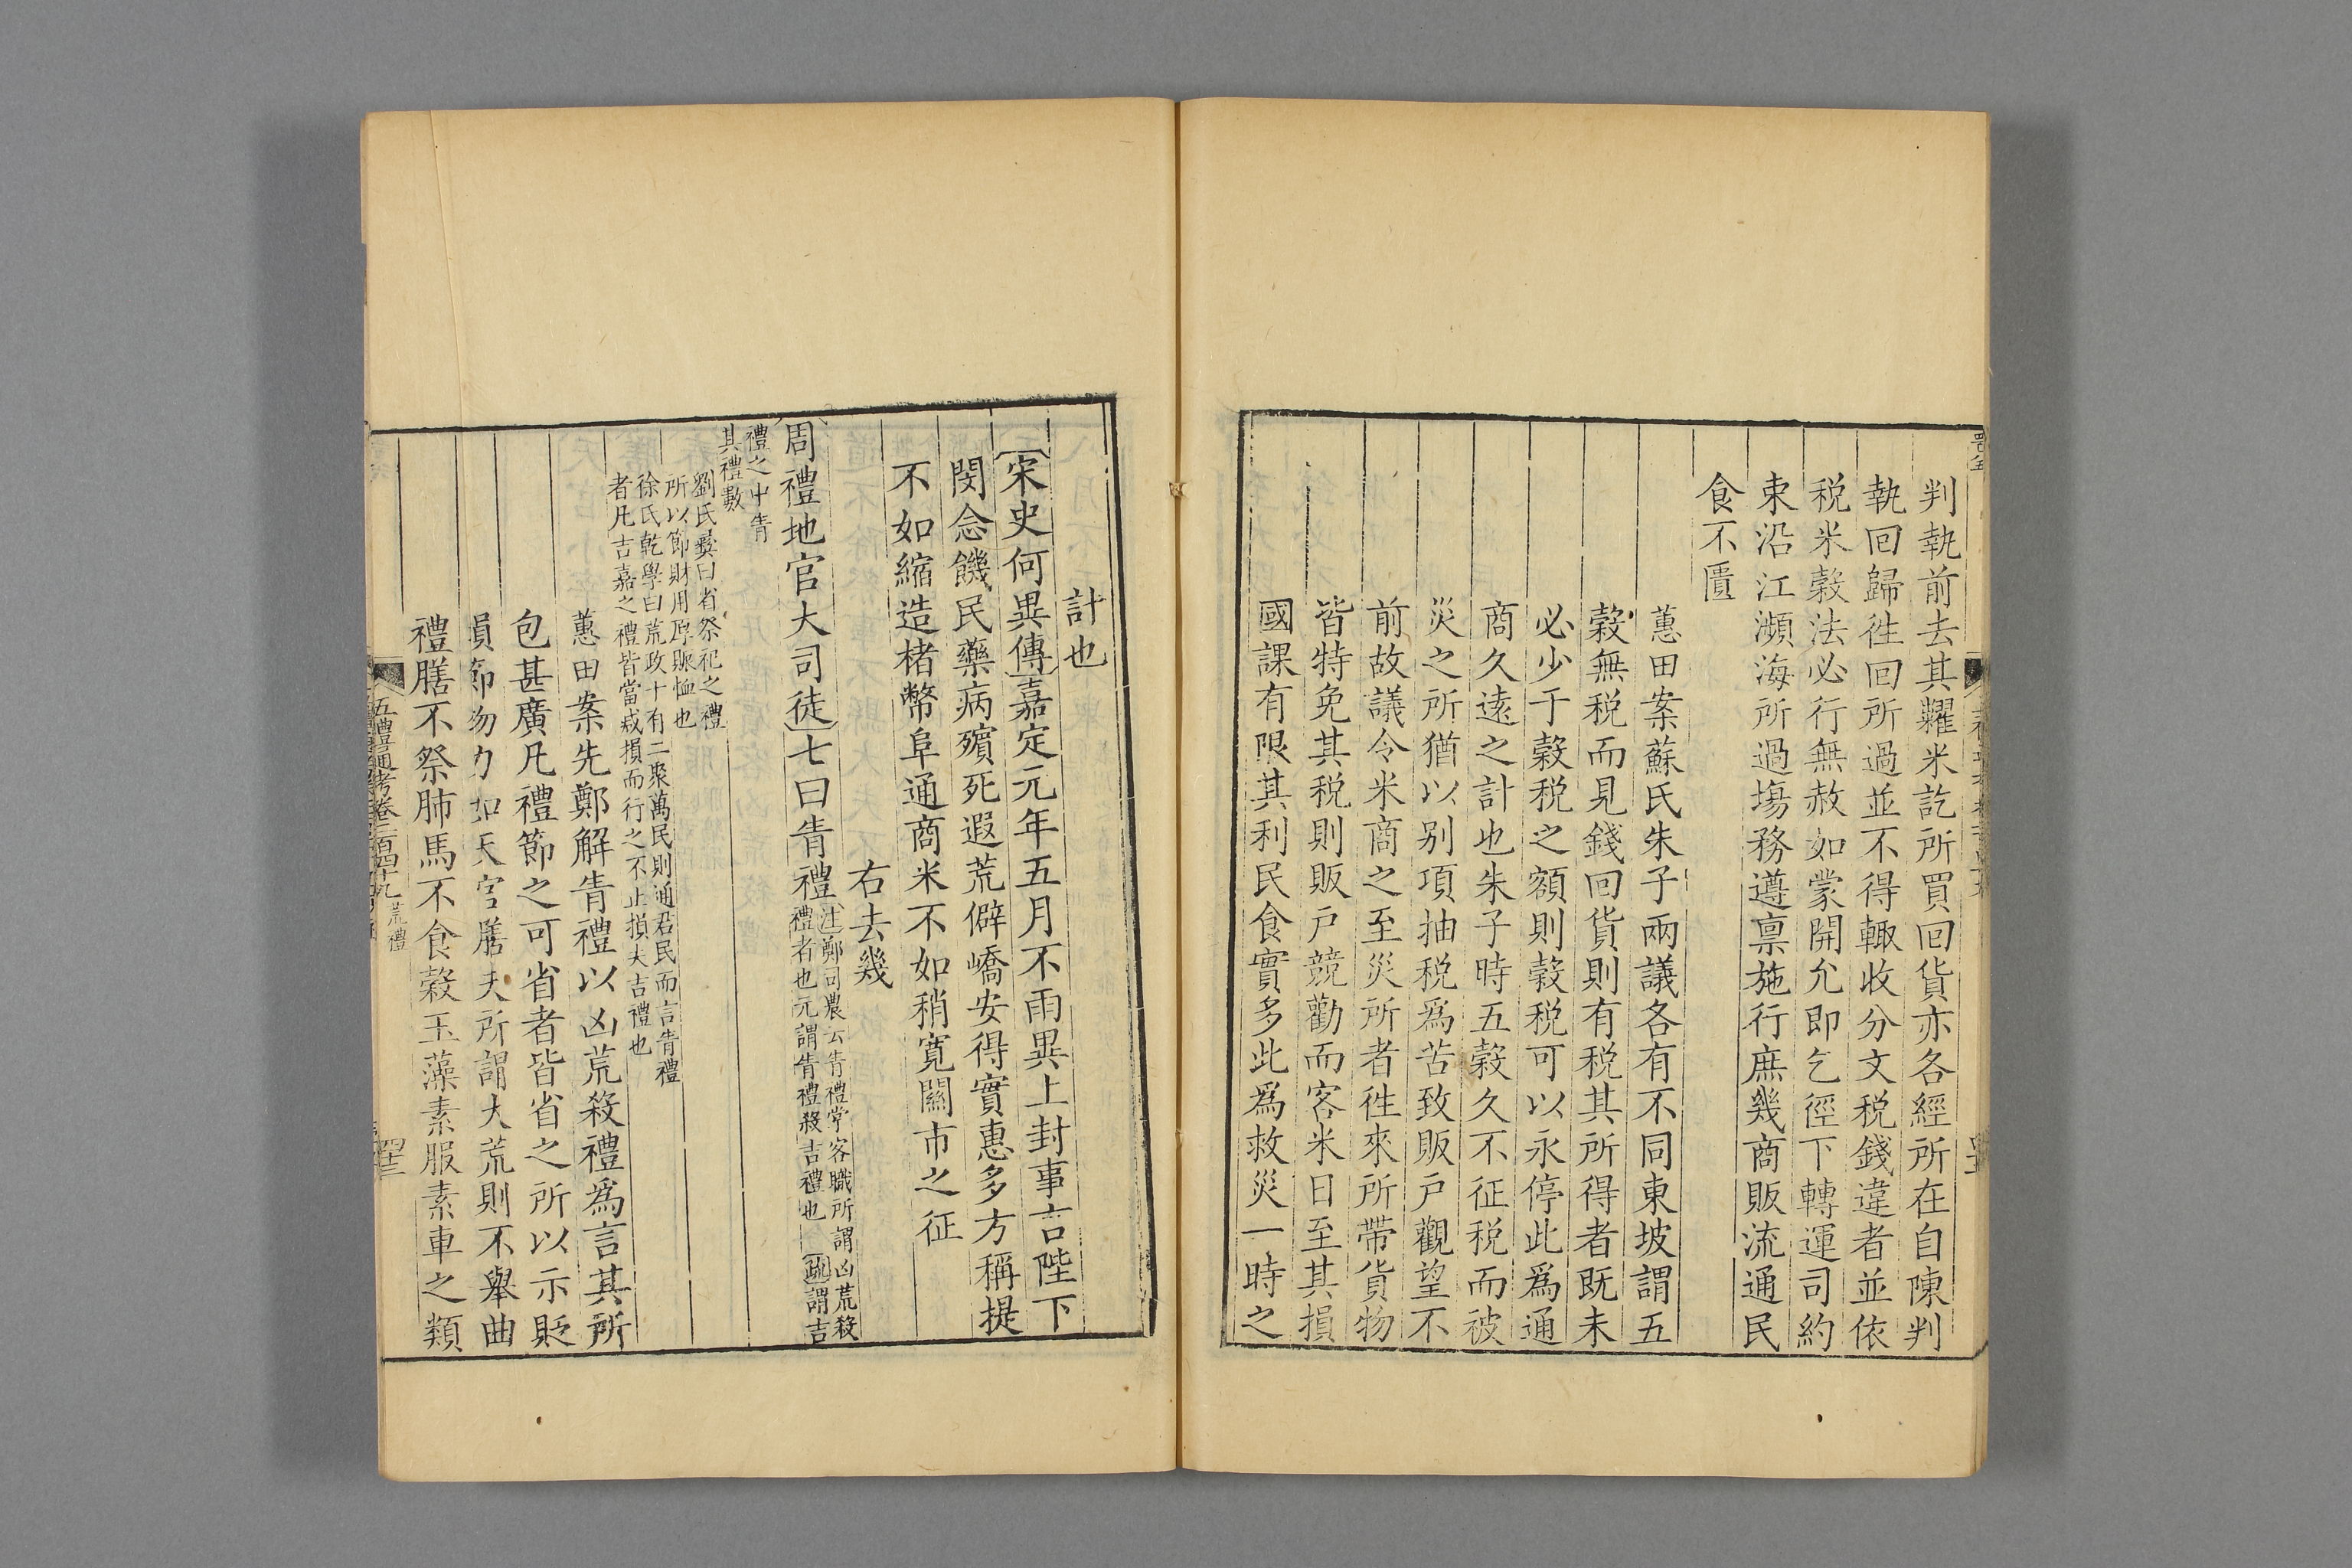 判執前去其糶米訖所買回貨亦各經所在自陳判
執回歸徃回所過並不得輙收分文税錢違者並依
税米榖法必行無赦如蒙開允即乞徑下轉運司約
束沿江瀕海所過塲務遵禀施行庶幾商販流通民
食不匱
蕙田案蘇氏朱子兩議各有不同東坡謂五
榖無税而見錢回貨則有税其所得者既未
必少于榖税之額則榖税可以永停此爲通
商久遠之計也朱子時五榖久不征税而被
災之所猶以别項抽税爲苦致販戶觀望不
前故議令米商之至災所者徃來所帶貨物
皆特免其税則販戶競勸而客米日至其損
國課有限其利民食實多此爲救災一時之
計也
宋史何異傳嘉定元年五月不雨異上封事言陛下
閔念饑民藥病殯死遐荒僻嶠安得實惠多方稱提
不如縮造楮幣阜通商米不如稍寛關市之征
右去幾
周禮地官大司徒七曰眚禮
注鄭司農云眚禮掌客職所謂凶荒殺
禮者也元謂眚禮殺吉禮也 疏謂吉
禮之中眚
其禮數
劉氏彝曰省祭祀之禮
所以節財用厚賑恤也
徐氏乾學曰荒政十有二聚萬民則通君民而言眚禮
者凡吉嘉之禮皆當戒損而行之不止損夫吉禮也
蕙田案先鄭解眚禮以凶荒殺禮爲言其所
包甚廣凡禮節之可省者皆省之所以示貶
損節物力如天官膳夫所謂大荒則不舉曲
禮膳不祭肺馬不食榖玉藻素服素車之類
五禮通考卷二百四十九 荒禮
四十三